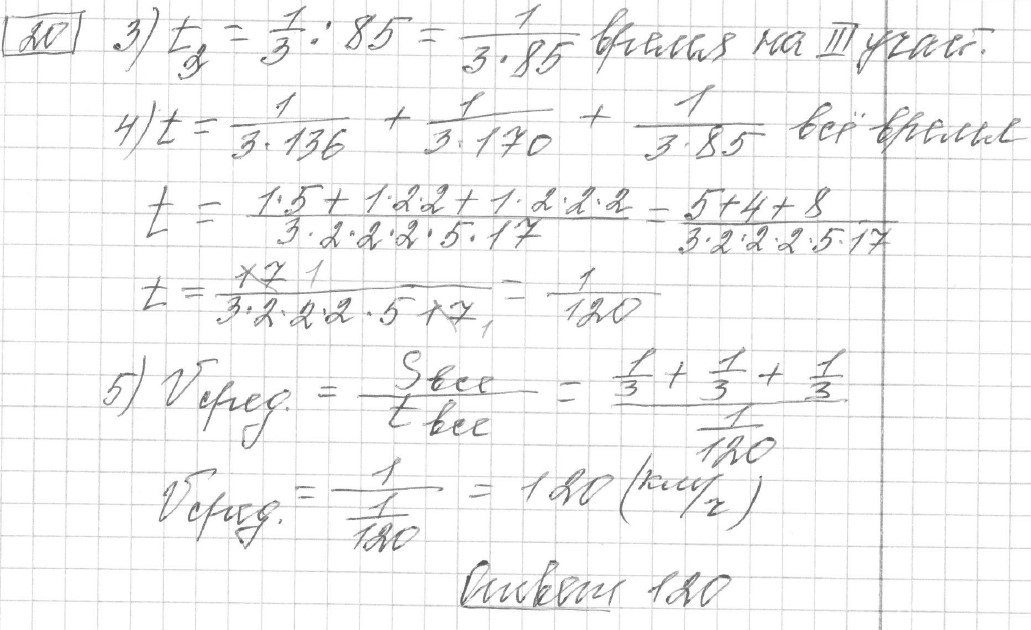 20 3) t₃ = 1/3 : 85 = 1/(3·85) время на III участ.
4) t = 1/(3·136) + 1/(3·170) + 1/(3·85) всё время
t = (1·5 + 1·2·2 + 1·2·2·2)/(3·2·2·2·5·17) = (5+4+8)/(3·2·2·2·5·17)
t = 17 1/(3·2·2·2·5 17 1) = 1/120
5) Vсред. = Sвсе/tвсе = (1/3 + 1/3 + 1/3)/(1/120)
Vсред. = 1/(1/120) = 120 (км/ч)
Ответ 120